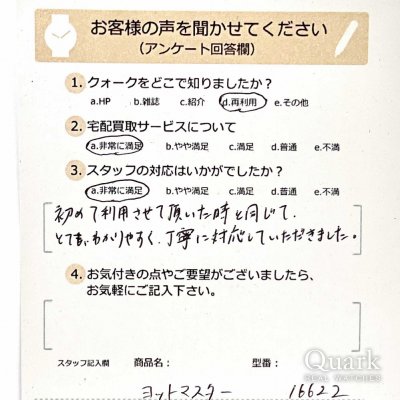 お客様の声を聞かせてください
（アンケート回答欄）
1. クォークをどこで知りましたか？
a.HP b.雑誌 c.紹介 d.再利用 e.その他
2. 宅配買取サービスについて
a.非常に満足 b.やや満足 c.満足 d.普通 e.不満
3. スタッフの対応はいかがでしたか？
a.非常に満足 b.やや満足 c.満足 d.普通 e.不満
初めて利用させて頂いた時と同じで、
とても、わかりやすく、丁寧に対応していただきました。
4. お気付きの点やご要望がございましたら、
お気軽にご記入下さい。
スタッフ記入欄 商品名： 型番：
ヨットマスター 16622
Quark
REAL WATCHES